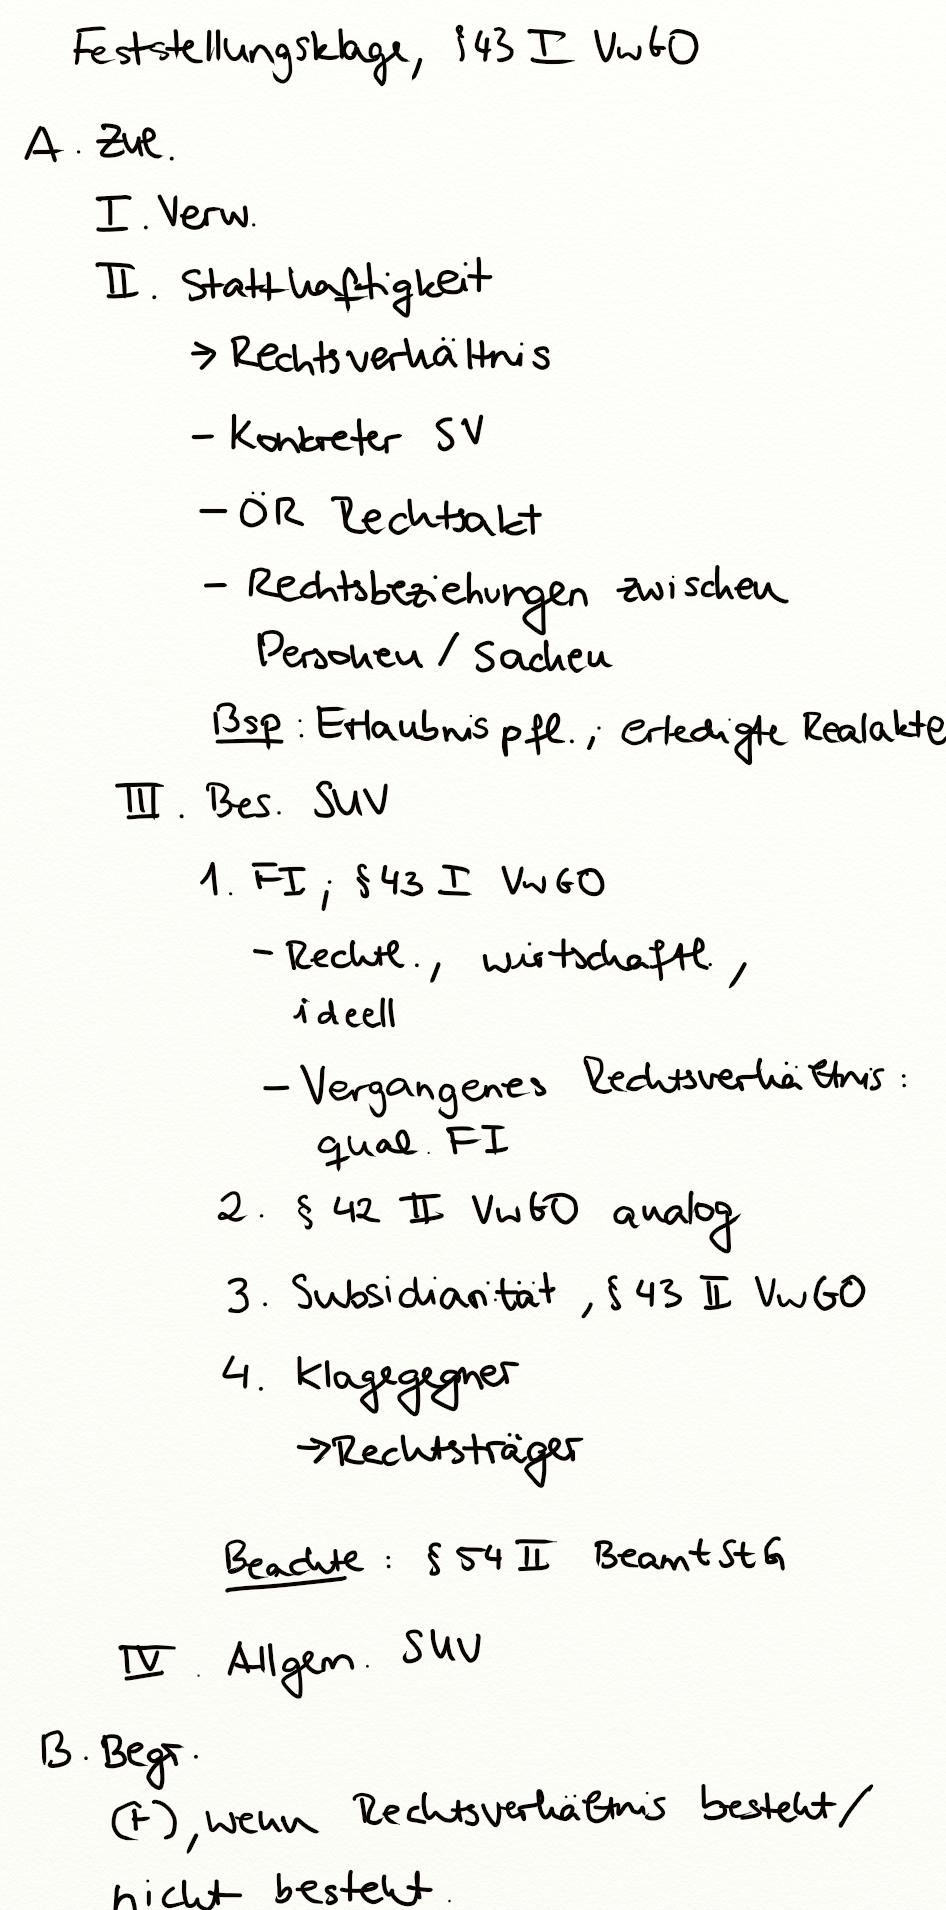 Feststellungsklage, § 43 I VwGO
A. Zul.
I. Verw.
II. Statthaftigkeit
→ Rechtsverhältnis
- Konkreter SV
- ÖR Rechtsakt
- Rechtsbeziehungen zwischen
Personen / Sachen
Bsp: Erlaubnispfl.; erledigte Realakte
III. Bes. SUV
1. FI; § 43 I VwGO
- Rechtl., wirtschaftl.,
ideell
- Vergangenes Rechtsverhältnis:
qual. FI
2. § 42 II VwGO analog
3. Subsidiarität, § 43 II VwGO
4. Klagegegner
→ Rechtsträger
Beachte: § 54 II BeamtStG
IV. Allgem. SUV
B. Begr.
(+), wenn Rechtsverhältnis besteht/
nicht besteht.